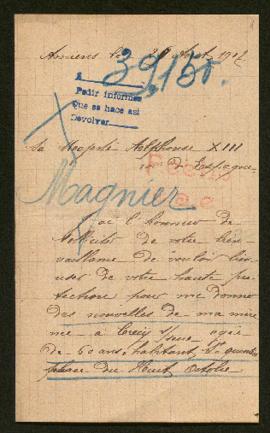 Amiens le 29 Août 1917
39150.
A
Pedir informes
Que se hace asi
Devolver
Sa Majesté Alphonse XIII
d'Espagne
Magnier
ai l'honneur de
solliciter de votre bien-
veillance de vouloir bien
user de votre haute pro-
tection pour me donner
des nouvelles de ma mère
née à Crecy s/Serre agée
de 60 ans, habitant, St quentin
place du Huit Octobre